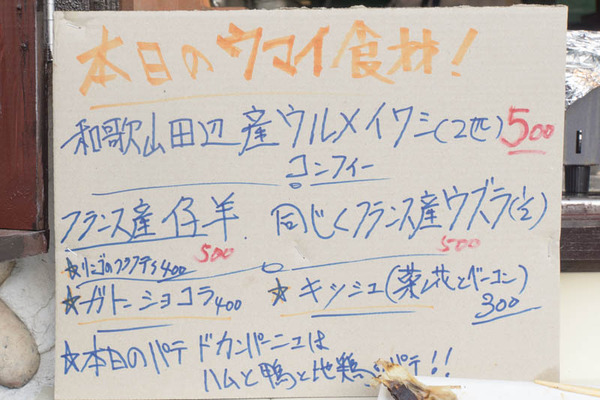 本日のウマイ食材!
和歌山田辺産ウルメイワシ(2匹) 500
コンフィー
フランス産仔羊 500
同じくフランス産ウズラ(1/2) 500
★リンゴのクラフティ 400
★ガトーショコラ 400
★キッシュ(菜ノ花とベーコン) 300
★本日のパテドカンパーニュは
ハムと鴨と地鶏 パテ!!